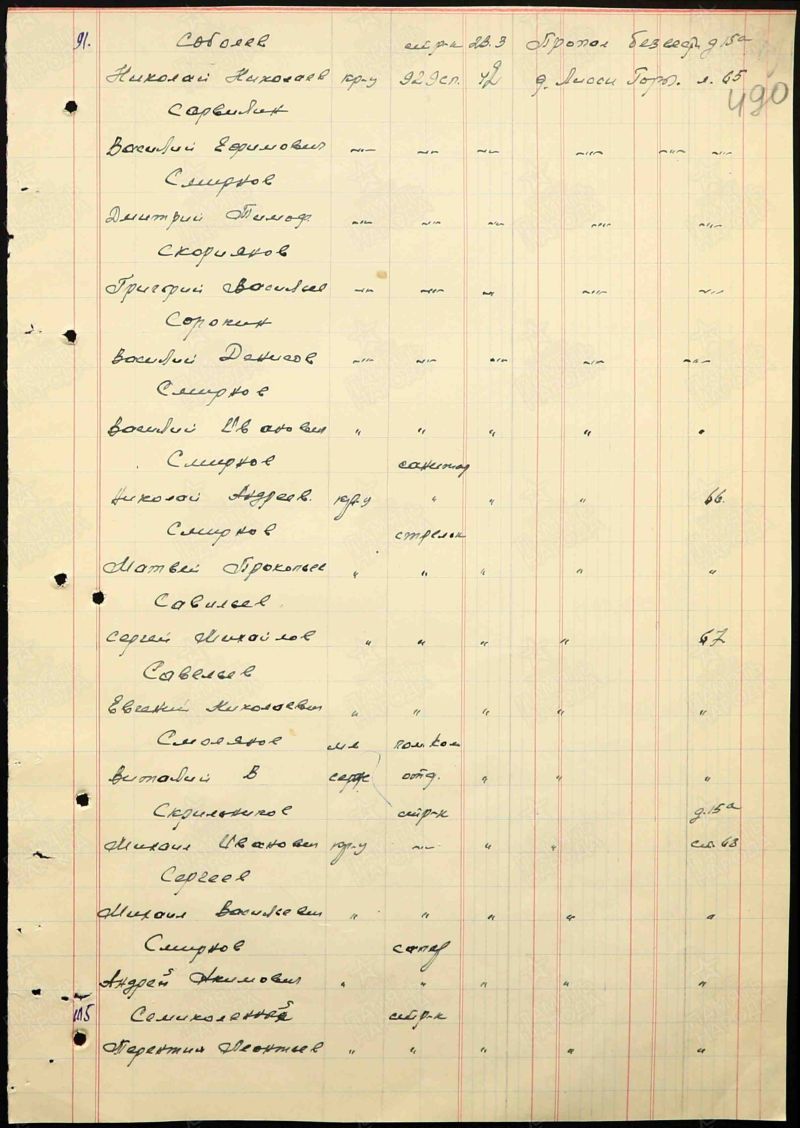 91. Соболев стр-к 23.3 Пропал без вест. д. 15а
Николай Николаев кр-ц 929сп. 42 д. Лисси Горы. л. 65
490
Сарвилин
Василий Ефимович -"- -"- -"- -"- -"- -"-
Смирнов
Дмитрий Тимоф -"- -"- -"- -"- -"-
Скориянов
Григорий Василье -"- -"- -"- -"- -"-
Сорокин
Василий Денисов -"- -"- -"- -"- -"-
Смирнов
Василий Иванович " " " " "
Смирнов санитар
Николай Андреев. кр-ц " " " 66.
Смирнов стрелок
Матвей Прокопьев " " " " "
Савильев
Сергей Михайлов " " " " 67
Савельев
Евгений Николаевич " " " " "
Смолянов мл пом ком
Виталий В серж отд. " " "
Скрильников стр-к д. 15а
Михаил Иванович кр-ц -"- " " ст. 68
Сергеев
Михаил Васильевич " " " " "
Смирнов сапер
Андрей Акимович " " " " "
115 стр-к
Леонтьев " " " " "